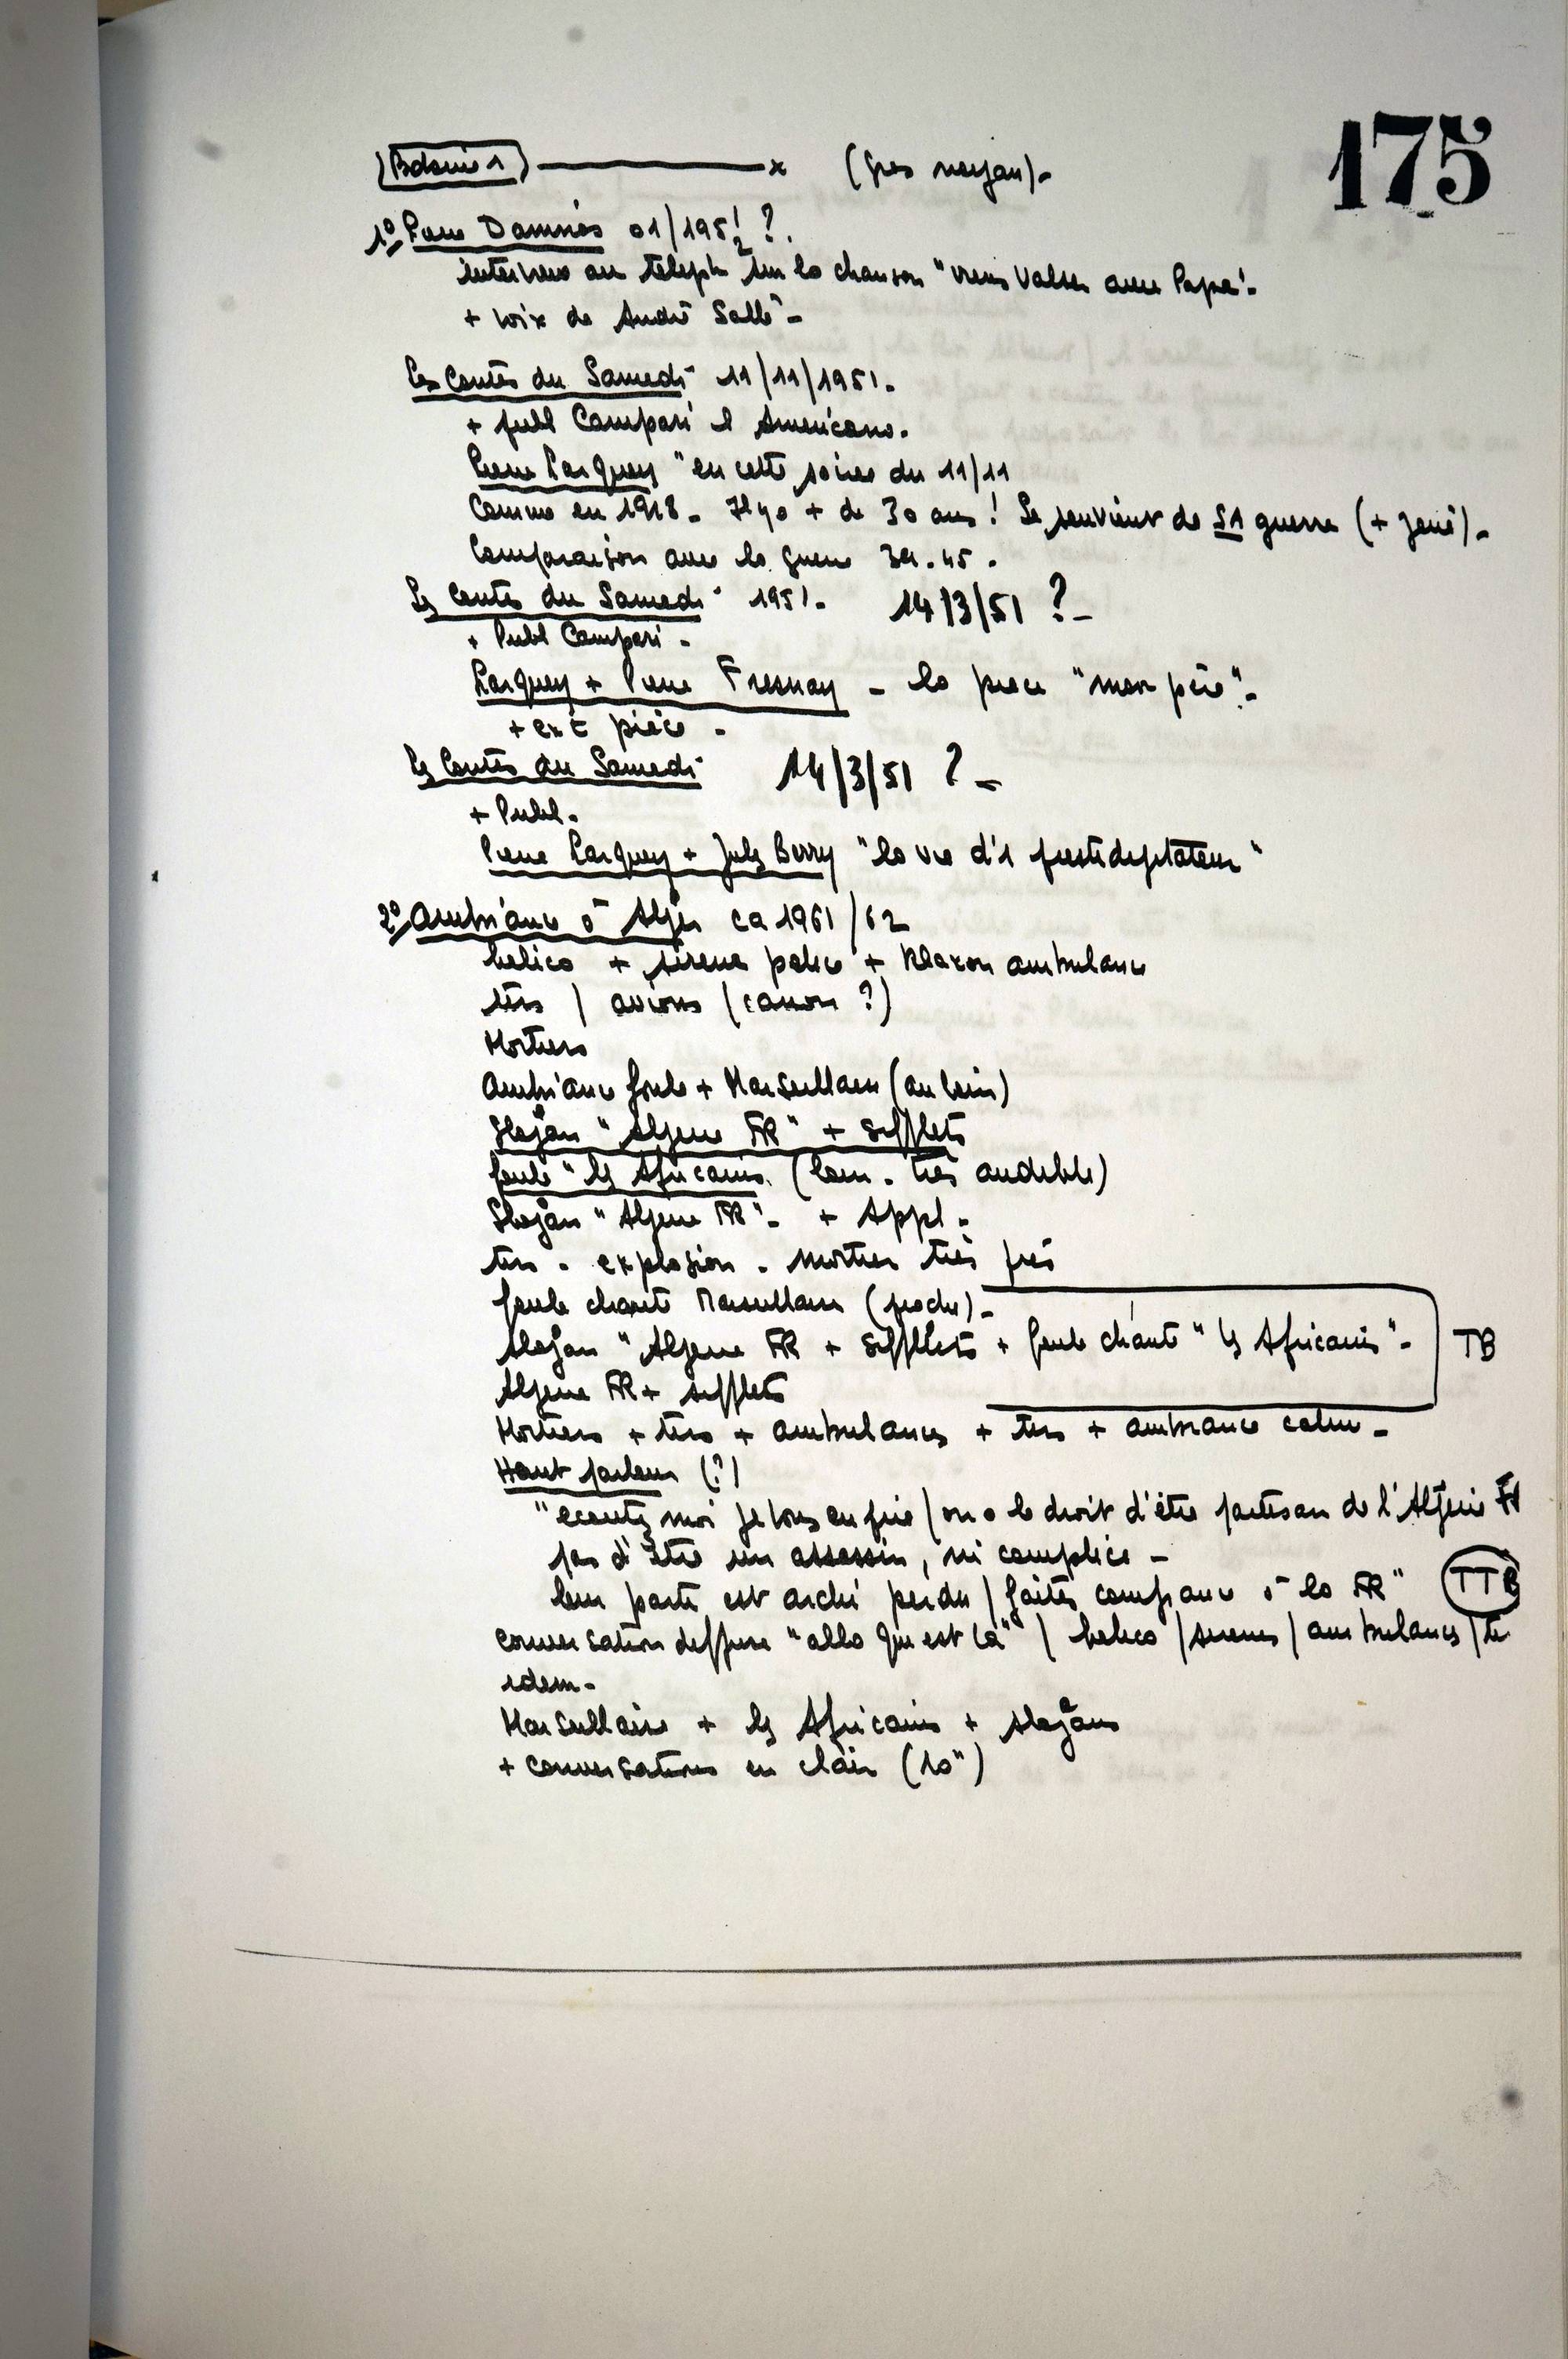 175
Bobine 1 x (gros noyau).
1° Pierre Damnés 01/1951/2 ?.
interview au téléph sur la chanson "viens valser avec Papa".
+ voix de André Salle".
Les Contes du Samedi 11/11/1951.
+ publ Campari l Americano.
Pierre Larquey "en cette soirée du 11/11
comme en 1918. Il y a + de 30 ans! Se souvient de 1 guerre (+ jeune).
Comparaison avec la guerre 39.45.
Les Contes du Samedi 1951. 14/3/51 ?
+ Publ Campari.
Larquey + Pierre Fresnay - la pièce "mon père".
+ ext pièce.
Les Contes du Samedi 14/3/51 ?
+ Publ.
Pierre Larquey + Jules Berry "la vie d'1 prestidigitateur"
2° Ambiance à Alger ca 1961/62
helico + sirene police + klaxon ambulance
tirs / avions (canon ?)
Mortiers
Ambiance foule + Marseillaise (au loin)
Slogan "Algerie FR" + sifflets
foule "les Africains. (loin. très audible)
Slogan "Algerie FR". + Appl.
tirs. explosion. mortier très près
foule chante Marseillaise (proche).
slogan "Algerie FR + sifflets + foule chante "les Africains". TB
Algerie FR + sifflets
Mortiers + tirs + ambulances + tirs + ambiance calme.
Haut parleur (?)
"ecoutez moi je vous en prie / on a le droit d'être partisan de l'Algerie FR
pas d'être un assassin, ni complice -
leur partie est archi perdue / faites confiance à la FR" TTB
conversation diffuse "allo qui est là" / helico / sirenes / ambulances /
idem.
Marseillaise + les Africains + slogans
+ conversations en clair (10")